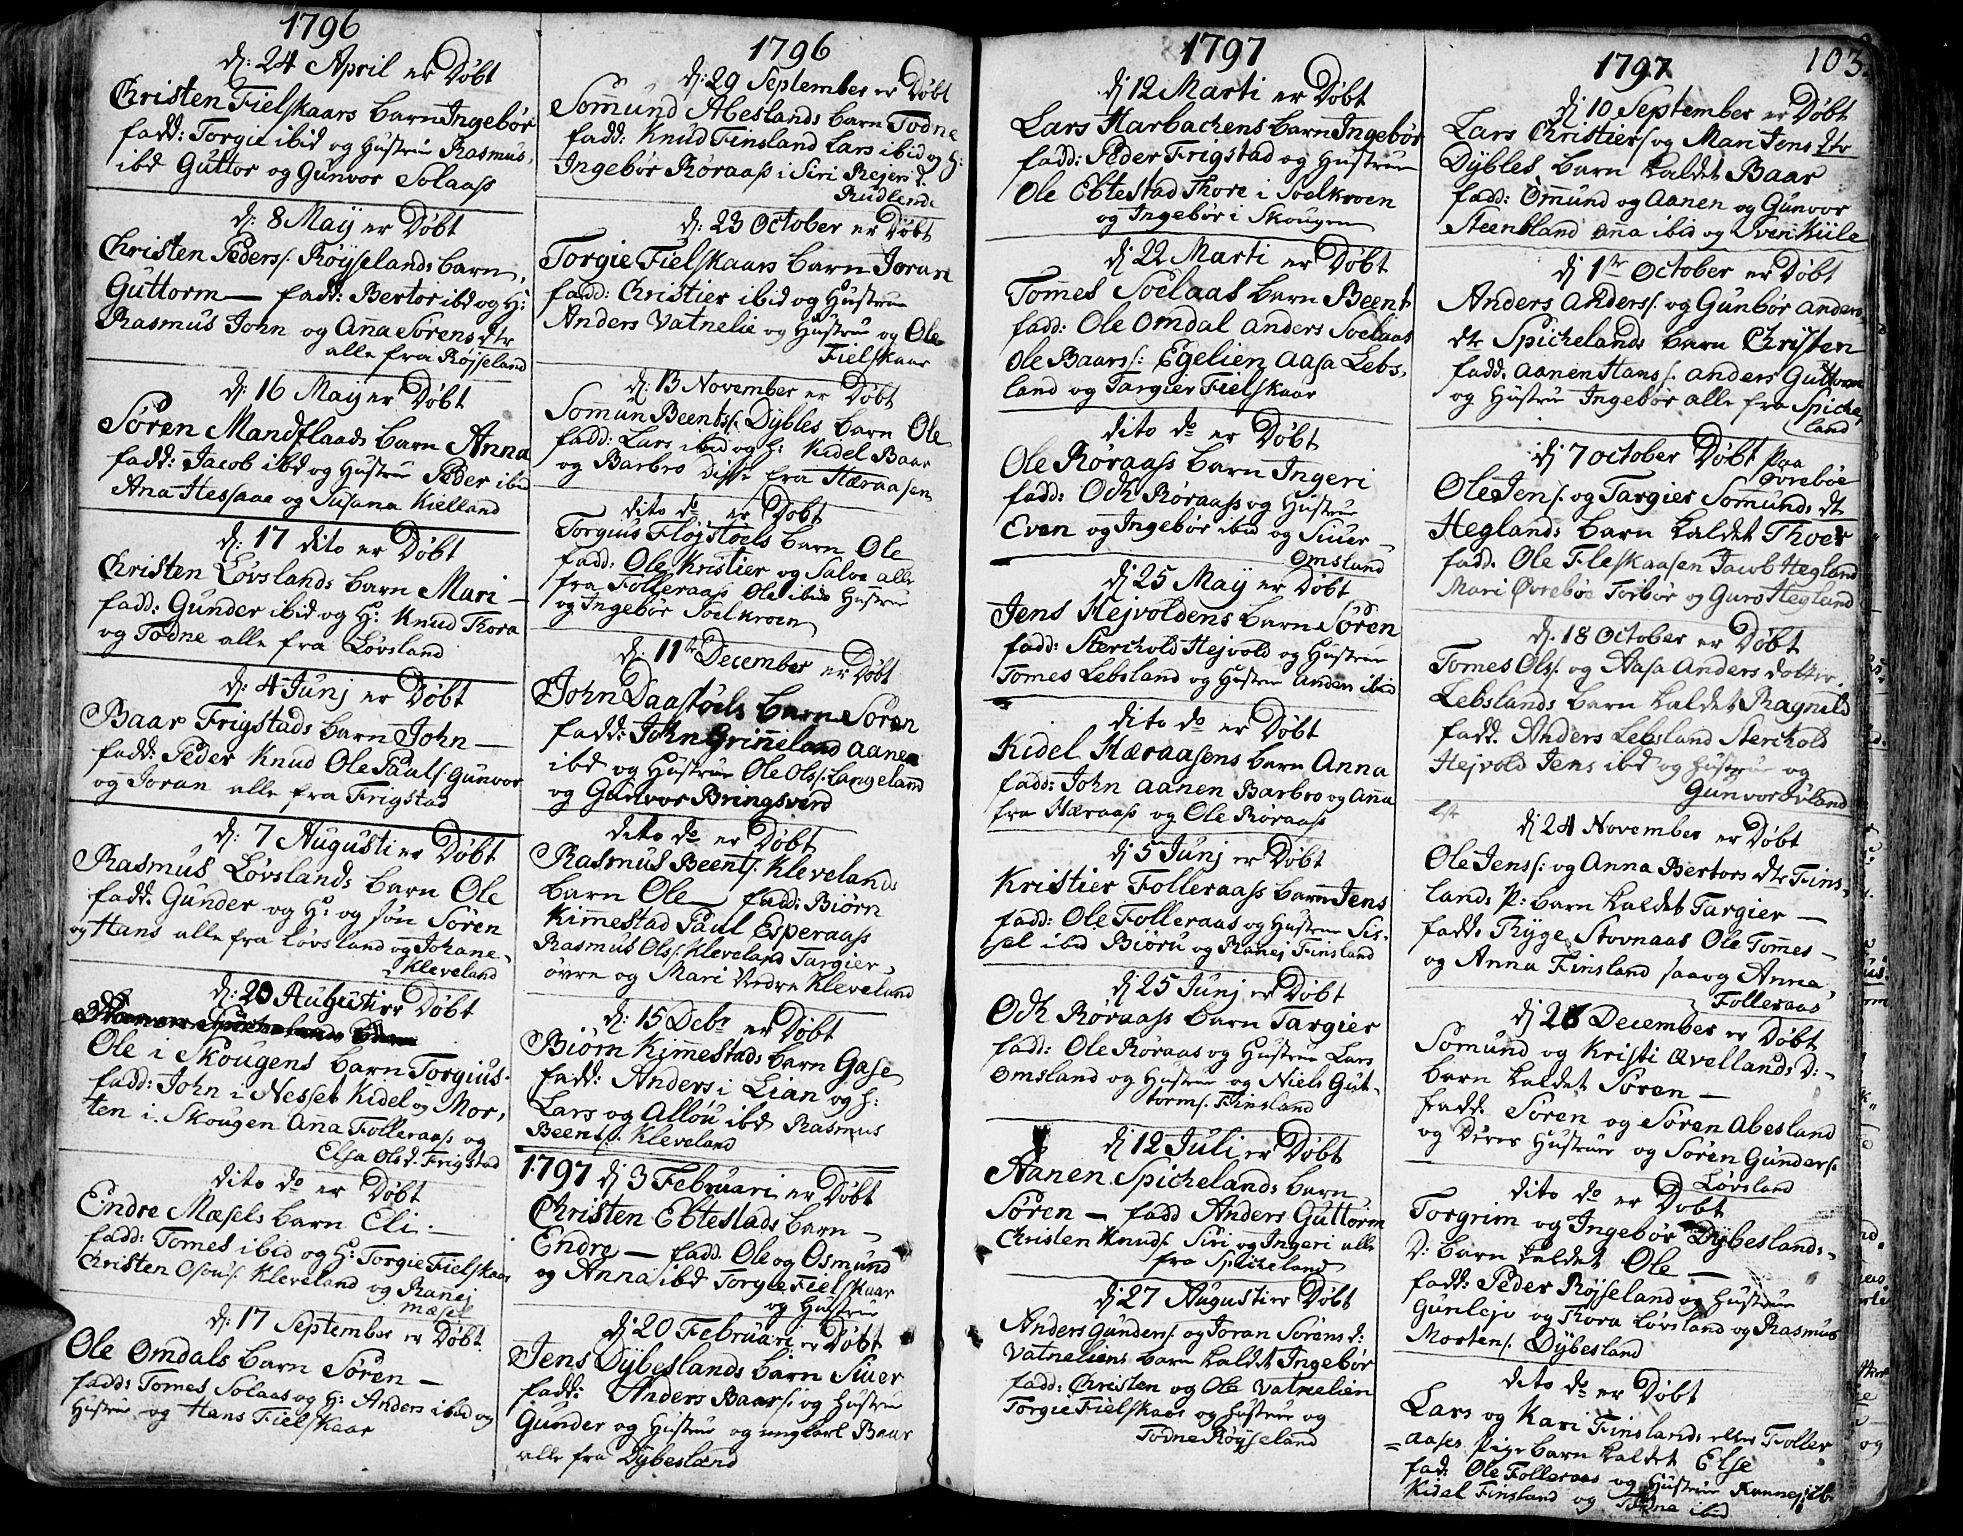 1796
dj: 24 April er Døbt
Christen Fielskaars barn Ingebør
fadd: Torgie ibid og Hustrue Rasmus
ibd Guttor og Gunvor Solaass
dj: 8 Maij er Døbt
Christen Peders: Røyselands barn
Guttorm — fadd: Bertor ibd og H:
Rasmus John og Anna Sørens dtr
alle fra Røjseland
dj: 16 Maij er Døbt
Søren Mandflaads barn Anna
fadd: Jacob ibd og Hustrue Peder ibid
Ana Hessaae og Susana Kielland
dj: 17 dito er Døbt
Christen Løvslands barn Mari —
fadd: Gunder ibid og H: Knud Thora
og Todne alle fra Løvsland
dj: 4 Junj er Døbt
Baar Frigstads barn John —
fadd: Peder Knud Ole Pauls: Gunvor
og Joran alle fra Frigstad
dj: 7 Augusti er Døbt
Rasmus Løvslands barn Ole
fadd. Gunder og H: og søn Søren
og Hans alle fra Løvsland og Johane
Kleveland
dj: 20 Augusti er Døbt
Ole i Skougens barn Torgius
fadd: John i Nesset Kidel og Mor,
ten i Skougen Anna Folleraass og
Elsa Olsd. Frigstad
dito do er Døbt
Endre Mæsels barn Eli —
fadd: Tomes ibid og H: Torgie Fielskaar
Christen Kleveland og Ranej
Mæsel
dj: 17 September er Døbt
Ole Omdals barn Søren —
fadd: Tomes Solaas og H: Anders ibid og
Hustrue og Hans Fielskaar
1796
dj: 29 September er Døbt
Somund Abeslands barn Todne
fadd: Knud Finsland Lars ibid og H:
Ingebør Røraass i Siri Rejersd.
Rudlend
dj: 23 October er Døbt
Torgie Fielskaars barn Joran
fadd: Christier ibid og Hustrue
Anders Vatnelie og Hustrue og Ole
Fielskaar
dj: 13 November er Døbt
Somun Beents: Dybles barn Ole
fadd: Lars ibid og H: Kidel Baar
og Barbro disse fra Hæraasen
dito do er Døbt
Torgius Fløjstøels barn Ole
fadd: Ole Kristier og Salve alle
fra Folleraass Ole ibid Hustrue
og Ingebør Soelkroen
dj: 11te December er Døbt
John Daastøels barn Søren
fadd: John Grinneland Aanen
ibd og Hustrue Ole Ols: Langeland
og Gunvor Bringsverd
dito do er Døbt
Rasmus Beents: Klevelands
barn Ole — fadd: Biørn
Kimestad Paul Esperaass
Rasmus Ols: Kleveland Targier
øvre og Mari Nedre Kleveland
dj: 15 Debr er Døbt
Biørn Kimestads barn Gase
fadd: Anders i Lian og H:
Lars og Alløu ibd Rasmus
Beents: Kleveland
1797 dj 3 Februari er Døbt
Christen Ebtestads barn —
Endre — fadd. Ole og Osmund
og Anna ibd Torgie Fielskaar
og Hustrue
dj 20 Februari er Døbt
Jens Dybeslands barn Siuer
fadd: Anders Baars: og Hustrue
Gunder og Hustrue og ungkarl Baar
alle fra Dybesland
1797
dj 12 Marti er Døbt
Lars Harbachens barn Ingebør
fadd: Peder Frigstad og Hustrue
Ole Ebtestad Thore i Soelkroen
og Ingebør i Skougen
dj 22 Marti er Døbt
Tomes Soelaas barn Beent
fadd: Ole Omdal Anders Soelaas
Ole Baars: Egelien Aasa Lebs,
land og Targier Fielskaar
dito do er Døbt
Ole Røraass barn Ingeri
fadd: Och Røraass og Hustrue
Even og Ingebør ibid og Siuer
Omsland
dj 25 Maij er Døbt
Jens Hejvoldens barn Søren
fadd: Sterchold Hejvold og Hustrue
Tomes Lebsland og Hustrue anden ibid
dito do er Døbt
Kidel Hæraasens barn Anna
fadd: John Aanen Barbro og Anna
fra Hæraass og Ole Røraass
dj 5 Junj er Døbt
Kristier Folleraass barn Jens
fadd: Ole Folleraas og Hustrue Sis-
sel ibid Biøru og Ranej Finsland
dj 25 Junj er Døbt
Och Røraass barn Targier
fadd: Ole Røraas og Hustrue Lars
Omsland og Hustrue og Niels Gut-
torms: Finsland
dj 12 Juli er Døbt
Aanen Spichelands barn
Søren — fadd Anders Guttorm
Christen Knuds: Siri og Ingeri alle
fra Spicheland
dj 27 Augusti er Døbt
Anders Gunders: og Joran Sørens d:
Vatneliens barn kaldet Ingebør
fadd: Christen og Ole Vatnelien
Torgie Fielskaar og Hustrue og
Todne Røysseland
1797
103
dj 10 September er Døbt
Lars Christiers: og Mari Jens dtr
Dybles barn kaldet Baar
fadd: Omund og Aanen og Gunvor
Steensland ana ibid og Sven Kiile
dj 1te October er Døbt
Anders Anders: og Gunbør Anders
dtr Spichelands barn Christen
fadd. Aanen Hans: Anders Guttorm
og Hustrue Ingebør alle fra Spiche,
land
dj 7 October Døbt paa
Øvrebøe
Ole Jens: og Targier Somunds dt
Heglands barn kaldet Thoer
fadd. Ole Fleskaasen Jacob Hegland
Mari Øvrebøe Torbør og Guro Hegland
dj. 18 October er Døbt
Tomes Ols: og Aasa Anders dotter
Lebslands barn kaldet Ragnild
fadd. Anders Lebsland Sterchold
Hejvold Jens ibd og Hustrue og
Gunvor Ivland
dj 24 November er Døbt
Ole Jens: og Anna Bertors dtr Fins,
lands P: barn kaldet Targier —
fadd: Tryge Stovnaas Ole Tomes —
og Anna Finsland saaog Anna
Folleraas
dj 26 December er Døbt
Somund og Kristi Avellands D: —
barn kaldet Søren —
fadd. Søren og Søren Abesland
og deres Hustruer og Søren Gunders:
Løvsland
dito do er Døbt
Torgrim og Ingebør Dybeslands
D: barn kaldet Ole —
fadd: Peder Røysseland og Hustrue
Gunlejv og Thora Løvsland og Rasmus
Mortens: Dybesland
dito do er Døbt
Lars og Kari Finslands eller Foller
= aases pige barn kaldet Else
fad: Ole Folleraas og Hustrue Rannej ib:
Kidel Finsland og Todne ibid